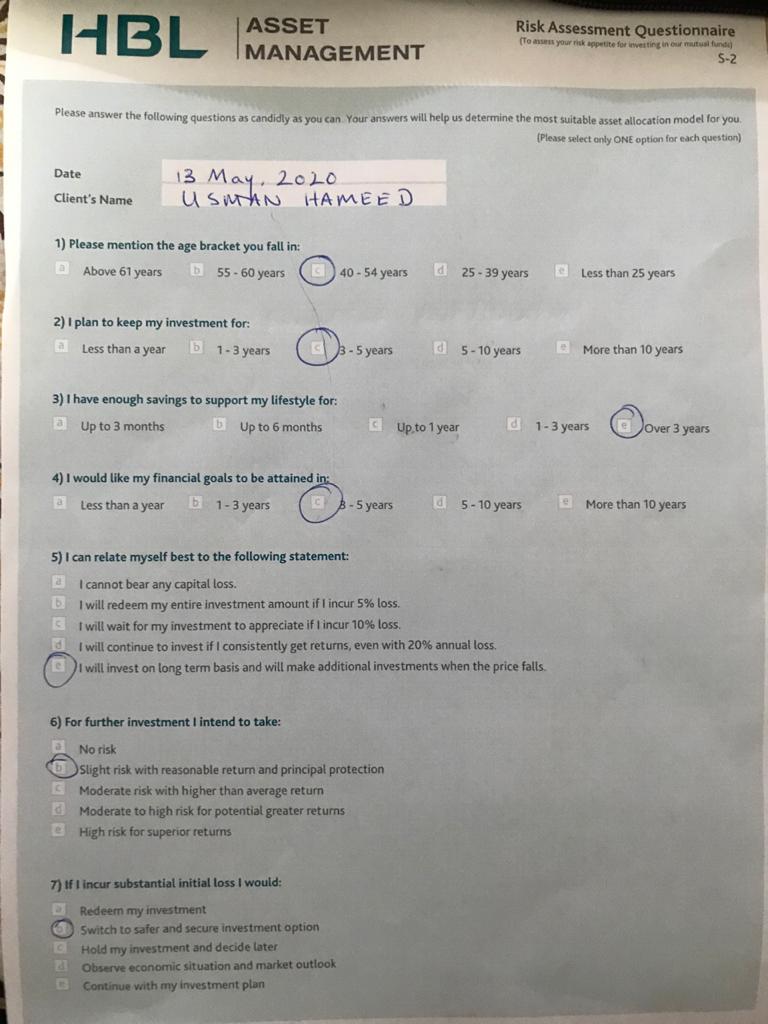 HBL ASSET MANAGEMENT
Risk Assessment Questionnaire
(To assess your risk appetite for investing in our mutual funds)
S-2
Please answer the following questions as candidly as you can. Your answers will help us determine the most suitable asset allocation model for you.
(Please select only ONE option for each question)
Date 13 May, 2020
Client's Name USMAN HAMEED
1) Please mention the age bracket you fall in:
a Above 61 years b 55 - 60 years c 40 - 54 years d 25 - 39 years e Less than 25 years
2) I plan to keep my investment for:
a Less than a year b 1 - 3 years c 3 - 5 years d 5 - 10 years e More than 10 years
3) I have enough savings to support my lifestyle for:
a Up to 3 months b Up to 6 months c Up to 1 year d 1 - 3 years e Over 3 years
4) I would like my financial goals to be attained in:
a Less than a year b 1 - 3 years c 3 - 5 years d 5 - 10 years e More than 10 years
5) I can relate myself best to the following statement:
a I cannot bear any capital loss.
b I will redeem my entire investment amount if I incur 5% loss.
c I will wait for my investment to appreciate if I incur 10% loss.
d I will continue to invest if I consistently get returns, even with 20% annual loss.
e I will invest on long term basis and will make additional investments when the price falls.
6) For further investment I intend to take:
a No risk
b Slight risk with reasonable return and principal protection
c Moderate risk with higher than average return
d Moderate to high risk for potential greater returns
e High risk for superior returns
7) If I incur substantial initial loss I would:
a Redeem my investment
b Switch to safer and secure investment option
c Hold my investment and decide later
d Observe economic situation and market outlook
e Continue with my investment plan